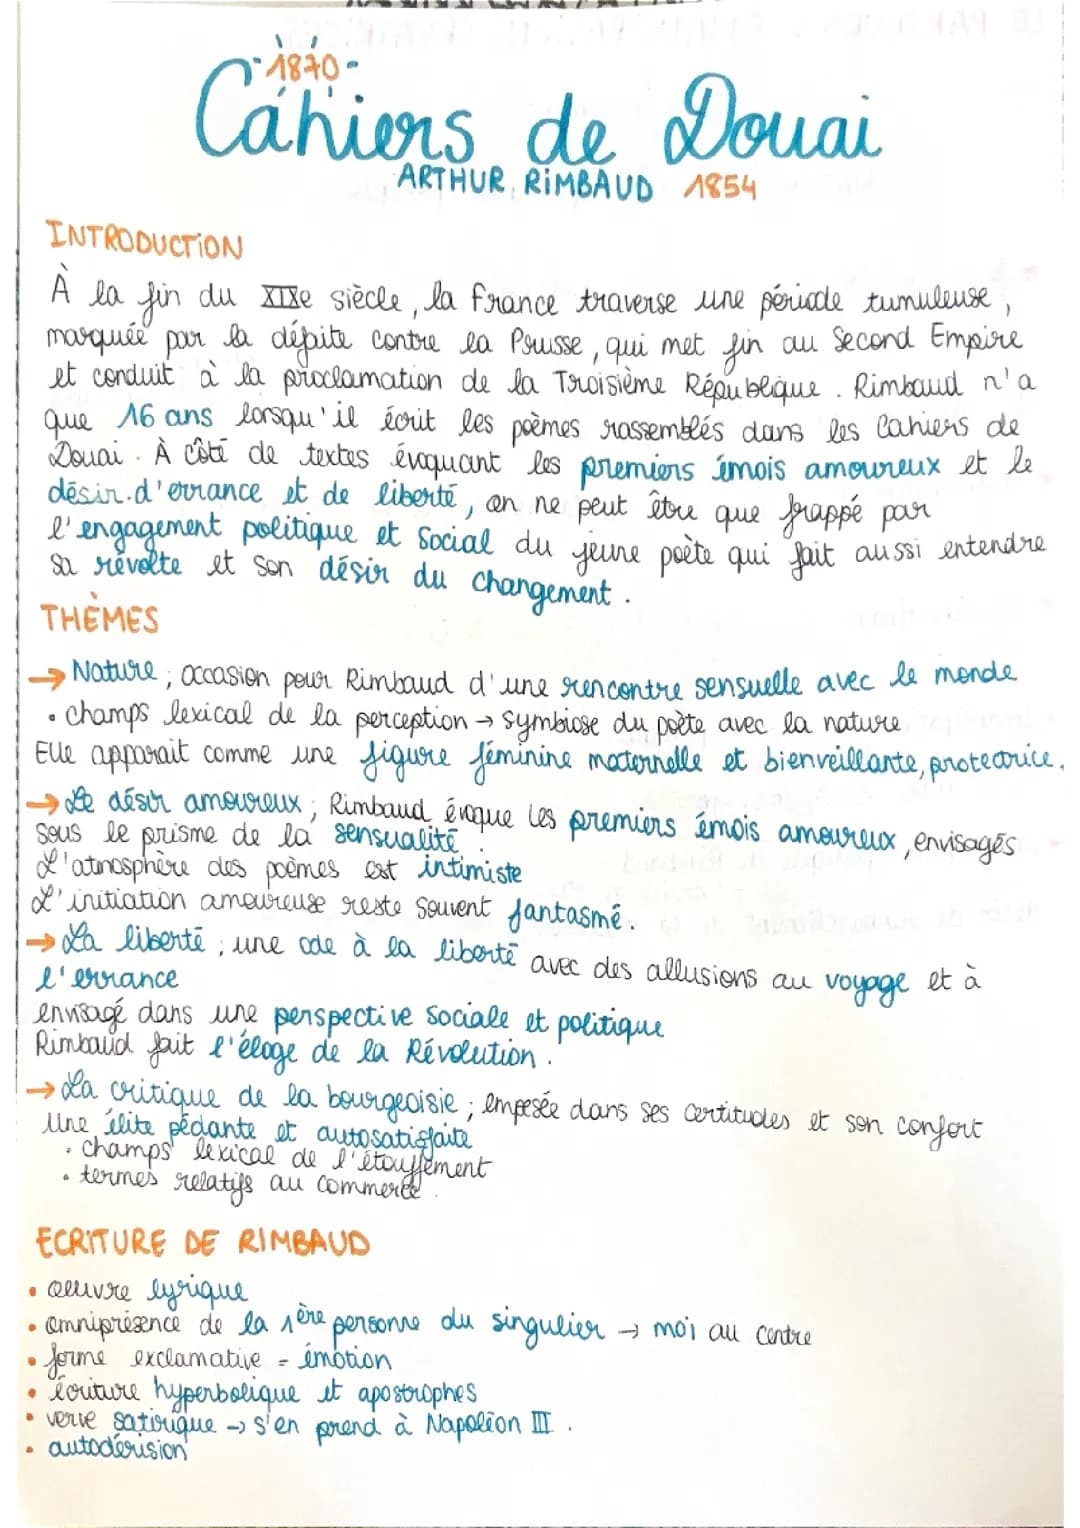 -1870-
Cahiers de Douai
ARTHUR RIMBAUD 1854
INTRODUCTION
À la fin du XIXe siècle, la France traverse une période tumuleuse,
marquée par la défaite contre la Prusse, qui met fin au Second Empire
et conduit à la proclamation de la Troisième République. Rimbaud n'a
que 16 ans lorsqu'il écrit les poèmes rassemblés dans les Cahiers de
Douai. À côté de textes évoquant les premiers émois amoureux et le
désir d'errance et de liberté, on ne peut être que frappé par
l'engagement politique et social du jeune poète qui fait aussi entendre
sa révolte et son désir du changement.
THÈMES
→ Nature ; occasion pour Rimbaud d'une rencontre sensuelle avec le monde
• champs lexical de la perception → symbiose du poète avec la nature
Elle apparait comme une figure féminine maternelle et bienveillante, protectrice.
→ Le désir amoureux ; Rimbaud évoque les premiers émois amoureux, envisagés
sous le prisme de la sensualité.
L'atmosphère des poèmes est intimiste
L'initiation amoureuse reste souvent fantasmé.
→ La liberté ; une ode à la liberté avec des allusions au voyage et à
l'errance
envisagé dans une perspective sociale et politique
Rimbaud fait l'éloge de la Révolution.
→ La critique de la bourgeoisie ; empesée dans ses certitudes et son confort
Une élite pédante et autosatisfaite
• champs lexical de l'étouffement
• termes relatifs au commerce.
ECRITURE DE RIMBAUD
• œuvre lyrique
• omniprésence de la 1ère personne du singulier → moi au centre
• forme exclamative = émotion
• écriture hyperbolique et apostrophes
• verve satirique → s'en prend à Napoléon III.
• autodérision